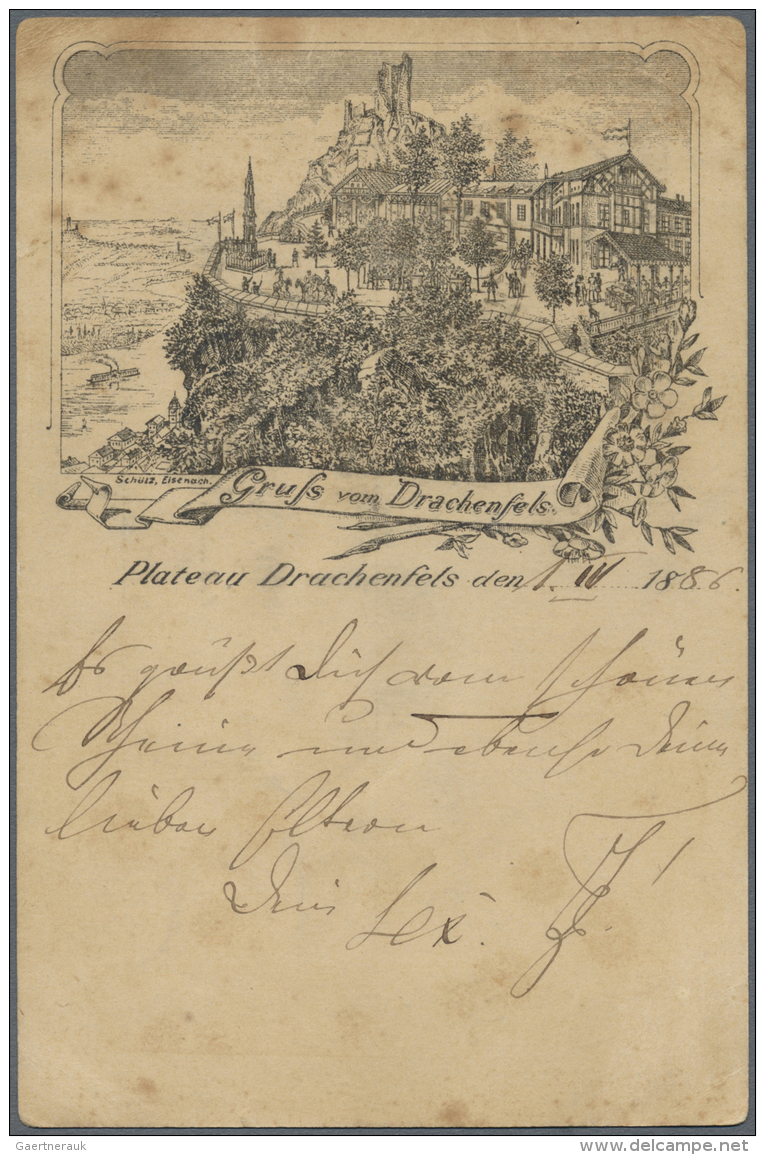 Schütz, Eisenach.
Gruss vom Drachenfels.
Plateau Drachenfels den 1. IV 1886.
Es grüßt Dich vom schönen
Rheine und ebenso Deine
lieben Eltern
Dein
Gaertnerauk
www.delcampe.net